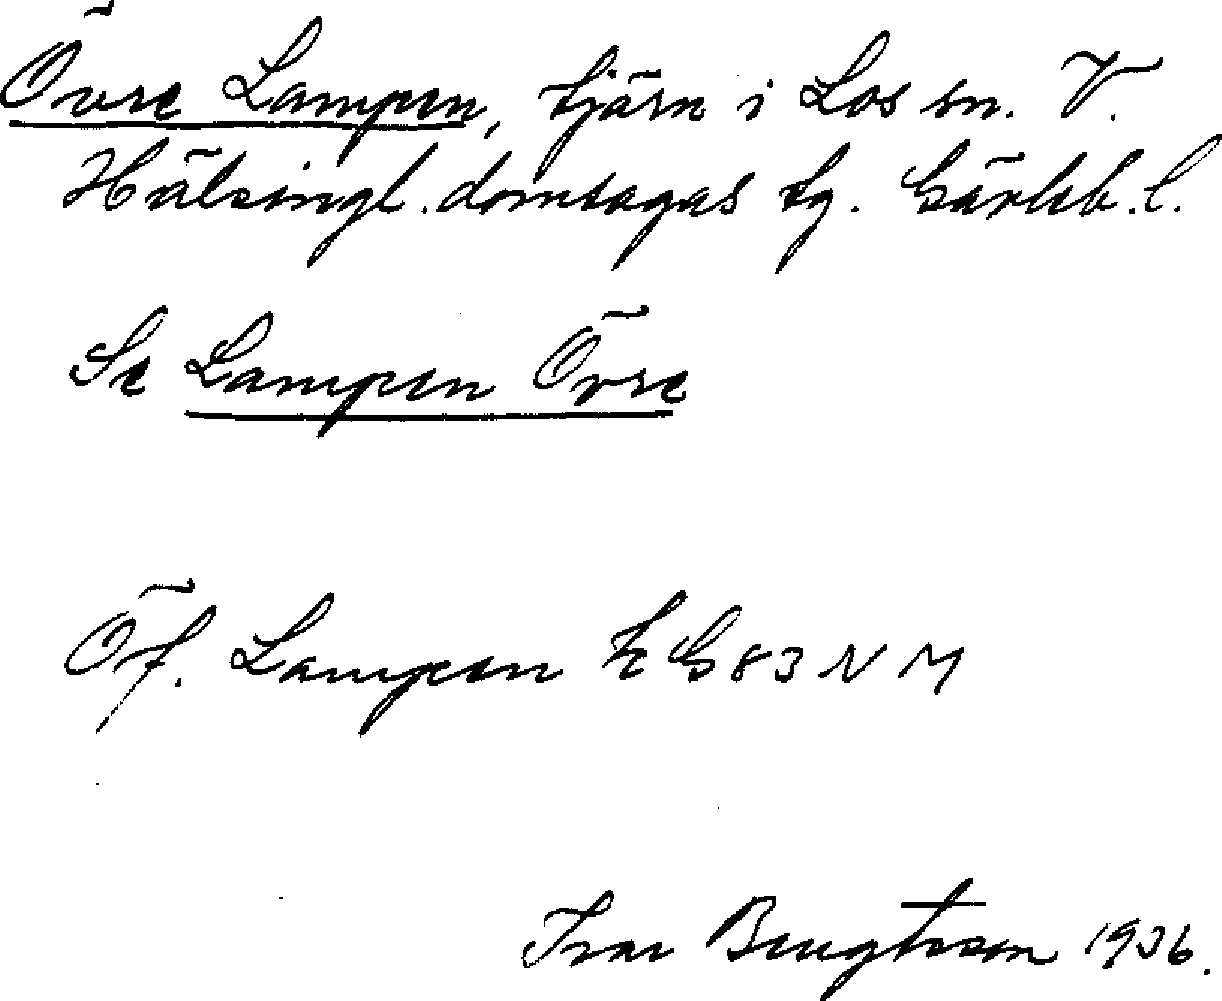 Övre Lampen, tjärn i Los sn. V.
Hälsingl. domsagas tg. Gävleb. l.
Se Lampen Övre
Öf. Lampen G 83 N M
Ivar Bengtsson 1936.